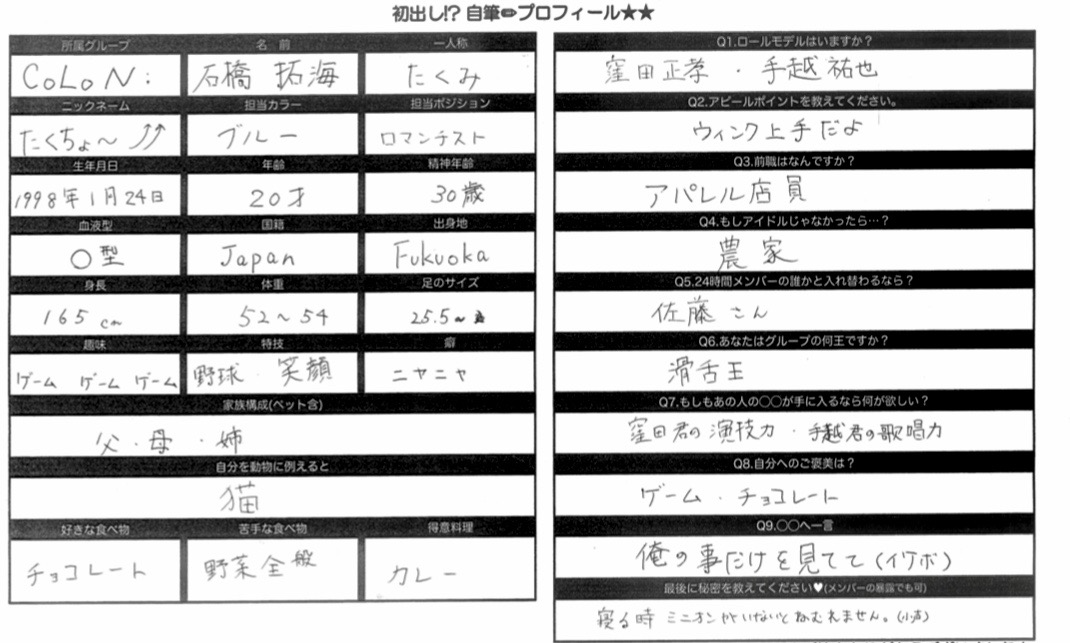 初出し!? 自筆✏プロフィール★★
所属グループ 名前 一人称
CoLoN: 石橋 拓海 たくみ
ニックネーム 担当カラー 担当ポジション
たくちょ〜⤴⤴ ブルー ロマンチスト
生年月日 年齢 精神年齢
1998年1月24日 20才 30歳
血液型 国籍 出身地
O型 Japan Fukuoka
身長 体重 足のサイズ
165cm 52〜54 25.5
趣味 特技 癖
ゲーム ゲーム ゲーム 野球・笑顔 ニヤニヤ
家族構成(ペット含)
父・母・姉
自分を動物に例えると
猫
好きな食べ物 苦手な食べ物 得意料理
チョコレート 野菜全般 カレー
Q1.ロールモデルはいますか？
窪田正孝・手越祐也
Q2.アピールポイントを教えてください。
ウィンク上手だよ
Q3.前職はなんですか？
アパレル店員
Q4.もしアイドルじゃなかったら…？
農家
Q5.24時間メンバーの誰かと入れ替わるなら？
佐藤こん
Q6.あなたはグループの何王ですか？
滑舌王
Q7.もしもあの人の〇〇が手に入るなら何が欲しい？
窪田君の演技力・手越君の歌唱力
Q8.自分へのご褒美は？
ゲーム・チョコレート
Q9.〇〇へ一言
俺の事だけを見てて(イケボ)
最後に秘密を教えてください♥(メンバーの暴露でも可)
寝る時 ミニオンがいないとねむれません。(小声)